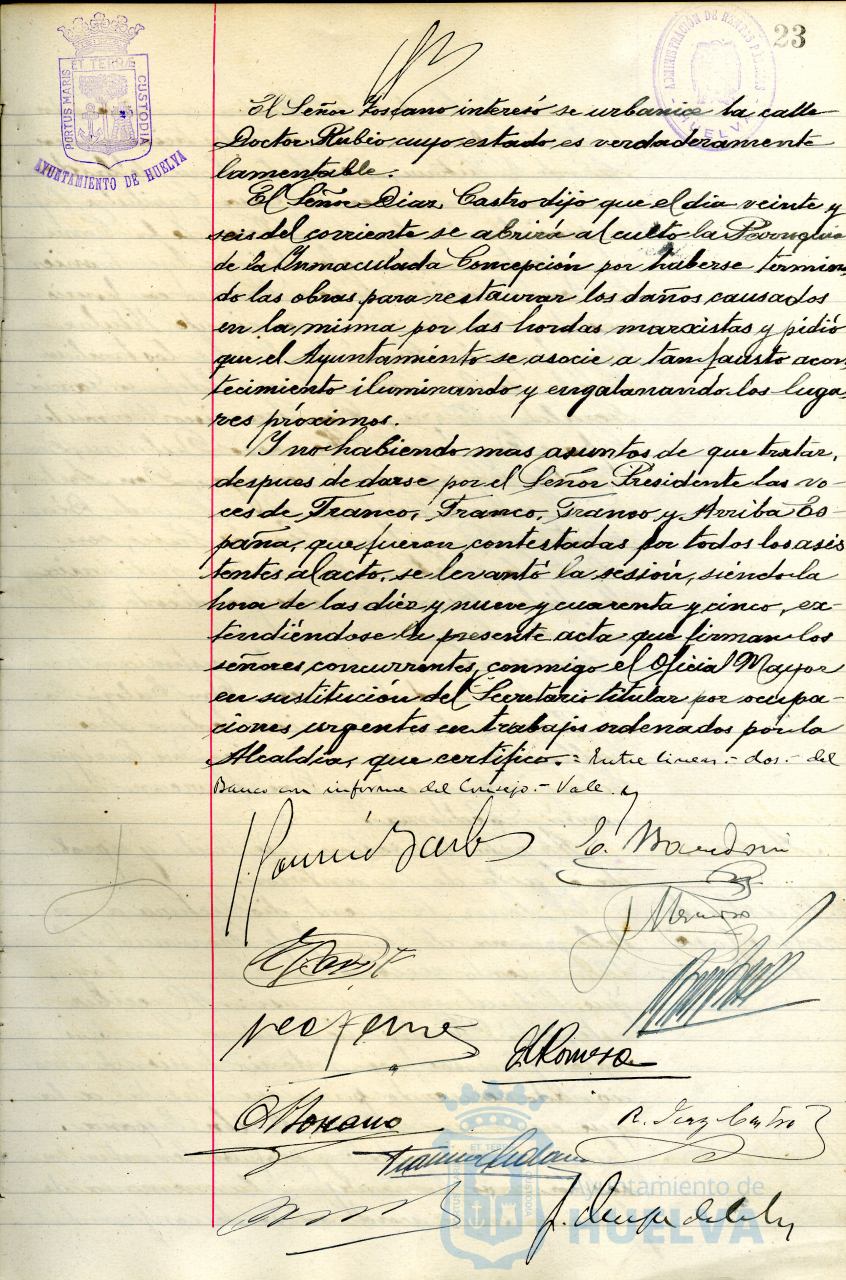 23
PORTUS MARIS ET TERRÆ CUSTODIA
AYUNTAMIENTO DE HUELVA
ADMINISTRACIÓN DE RENTAS
HUELVA
El Señor Toscano interesó se urbanice la calle
Doctor Rubio cuyo estado es verdaderamente
lamentable.
El Señor Diaz Castro dijo que el dia veinte y
seis del corriente se abrirá al culto la Parroquia
de la Inmaculada Concepción por haberse termina
do las obras para restaurar los daños causados
en la misma por las hordas marxistas y pidió
que el Ayuntamiento se asocie a tan fausto acon
tecimiento iluminando y engalanando los luga-
res próximos.
Y no habiendo mas asuntos de que tratar,
despues de darse por el Señor Presidente las vo-
ces de Franco, Franco, Franco y Arriba Es-
paña, que fueron contestadas por todos los asis
tentes al acto, se levantó la sesión, siendo la
hora de las diez y nueve y cuarenta y cinco, ex-
tendiéndose la presente acta que firman los
señores concurrentes, conmigo el Oficial Mayor
en sustitución del Secretario titular por ocupa-
ciones urgentes en trabajos ordenados por la
Alcaldía, que certifico.= Entre lineas.- dos.- del
Banco con informe del Consejo.- Vale.
E.
Romero
R. Diaz Castro
Ayuntamiento de
HUELVA